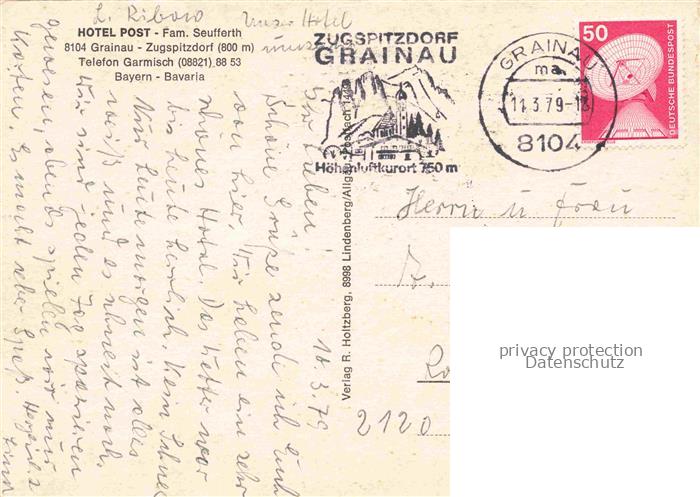 L. Ribow
Unser Hotel
HOTEL POST - Fam. Seufferth
8104 Grainau - Zugspitzdorf (800 m)
Telefon Garmisch (08821) 88 53
Bayern - Bavaria
ZUGSPITZDORF
GRAINAU
Höhenluftkurort 750 m
GRAINAU
ma
11.3.79-18
8104
50
DEUTSCHE BUNDESPOST
Verlag R. Holtzberg, 8998 Lindenberg/Allgäu, Postfach 1
10.3.79
Ihr Lieben!
Schöne Grüße sende ich Euch
von hier. Wir haben ein sehr
schönes Hotel. Das Wetter war
bis heute herrlich. Kein Schnee
Nur heute morgen ist alles
weiß und es schneit noch.
Wir sind jeden Tag spazieren
gewesen, abends spielen wir nur
Karten. Es macht sehr Spaß. Herzlichst
Herrn u Frau
2120
privacy protection
Datenschutz